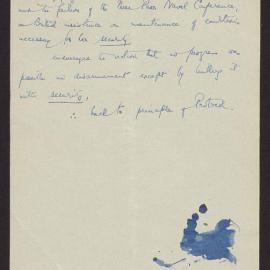 the failure of the Three Power Naval Conference,
on British insistence on maintenance of conditions
necessary for her security
encourages the notion that no progress was
possible in disarmament except by linking it
with security,
∴ back to principles of Protocol.